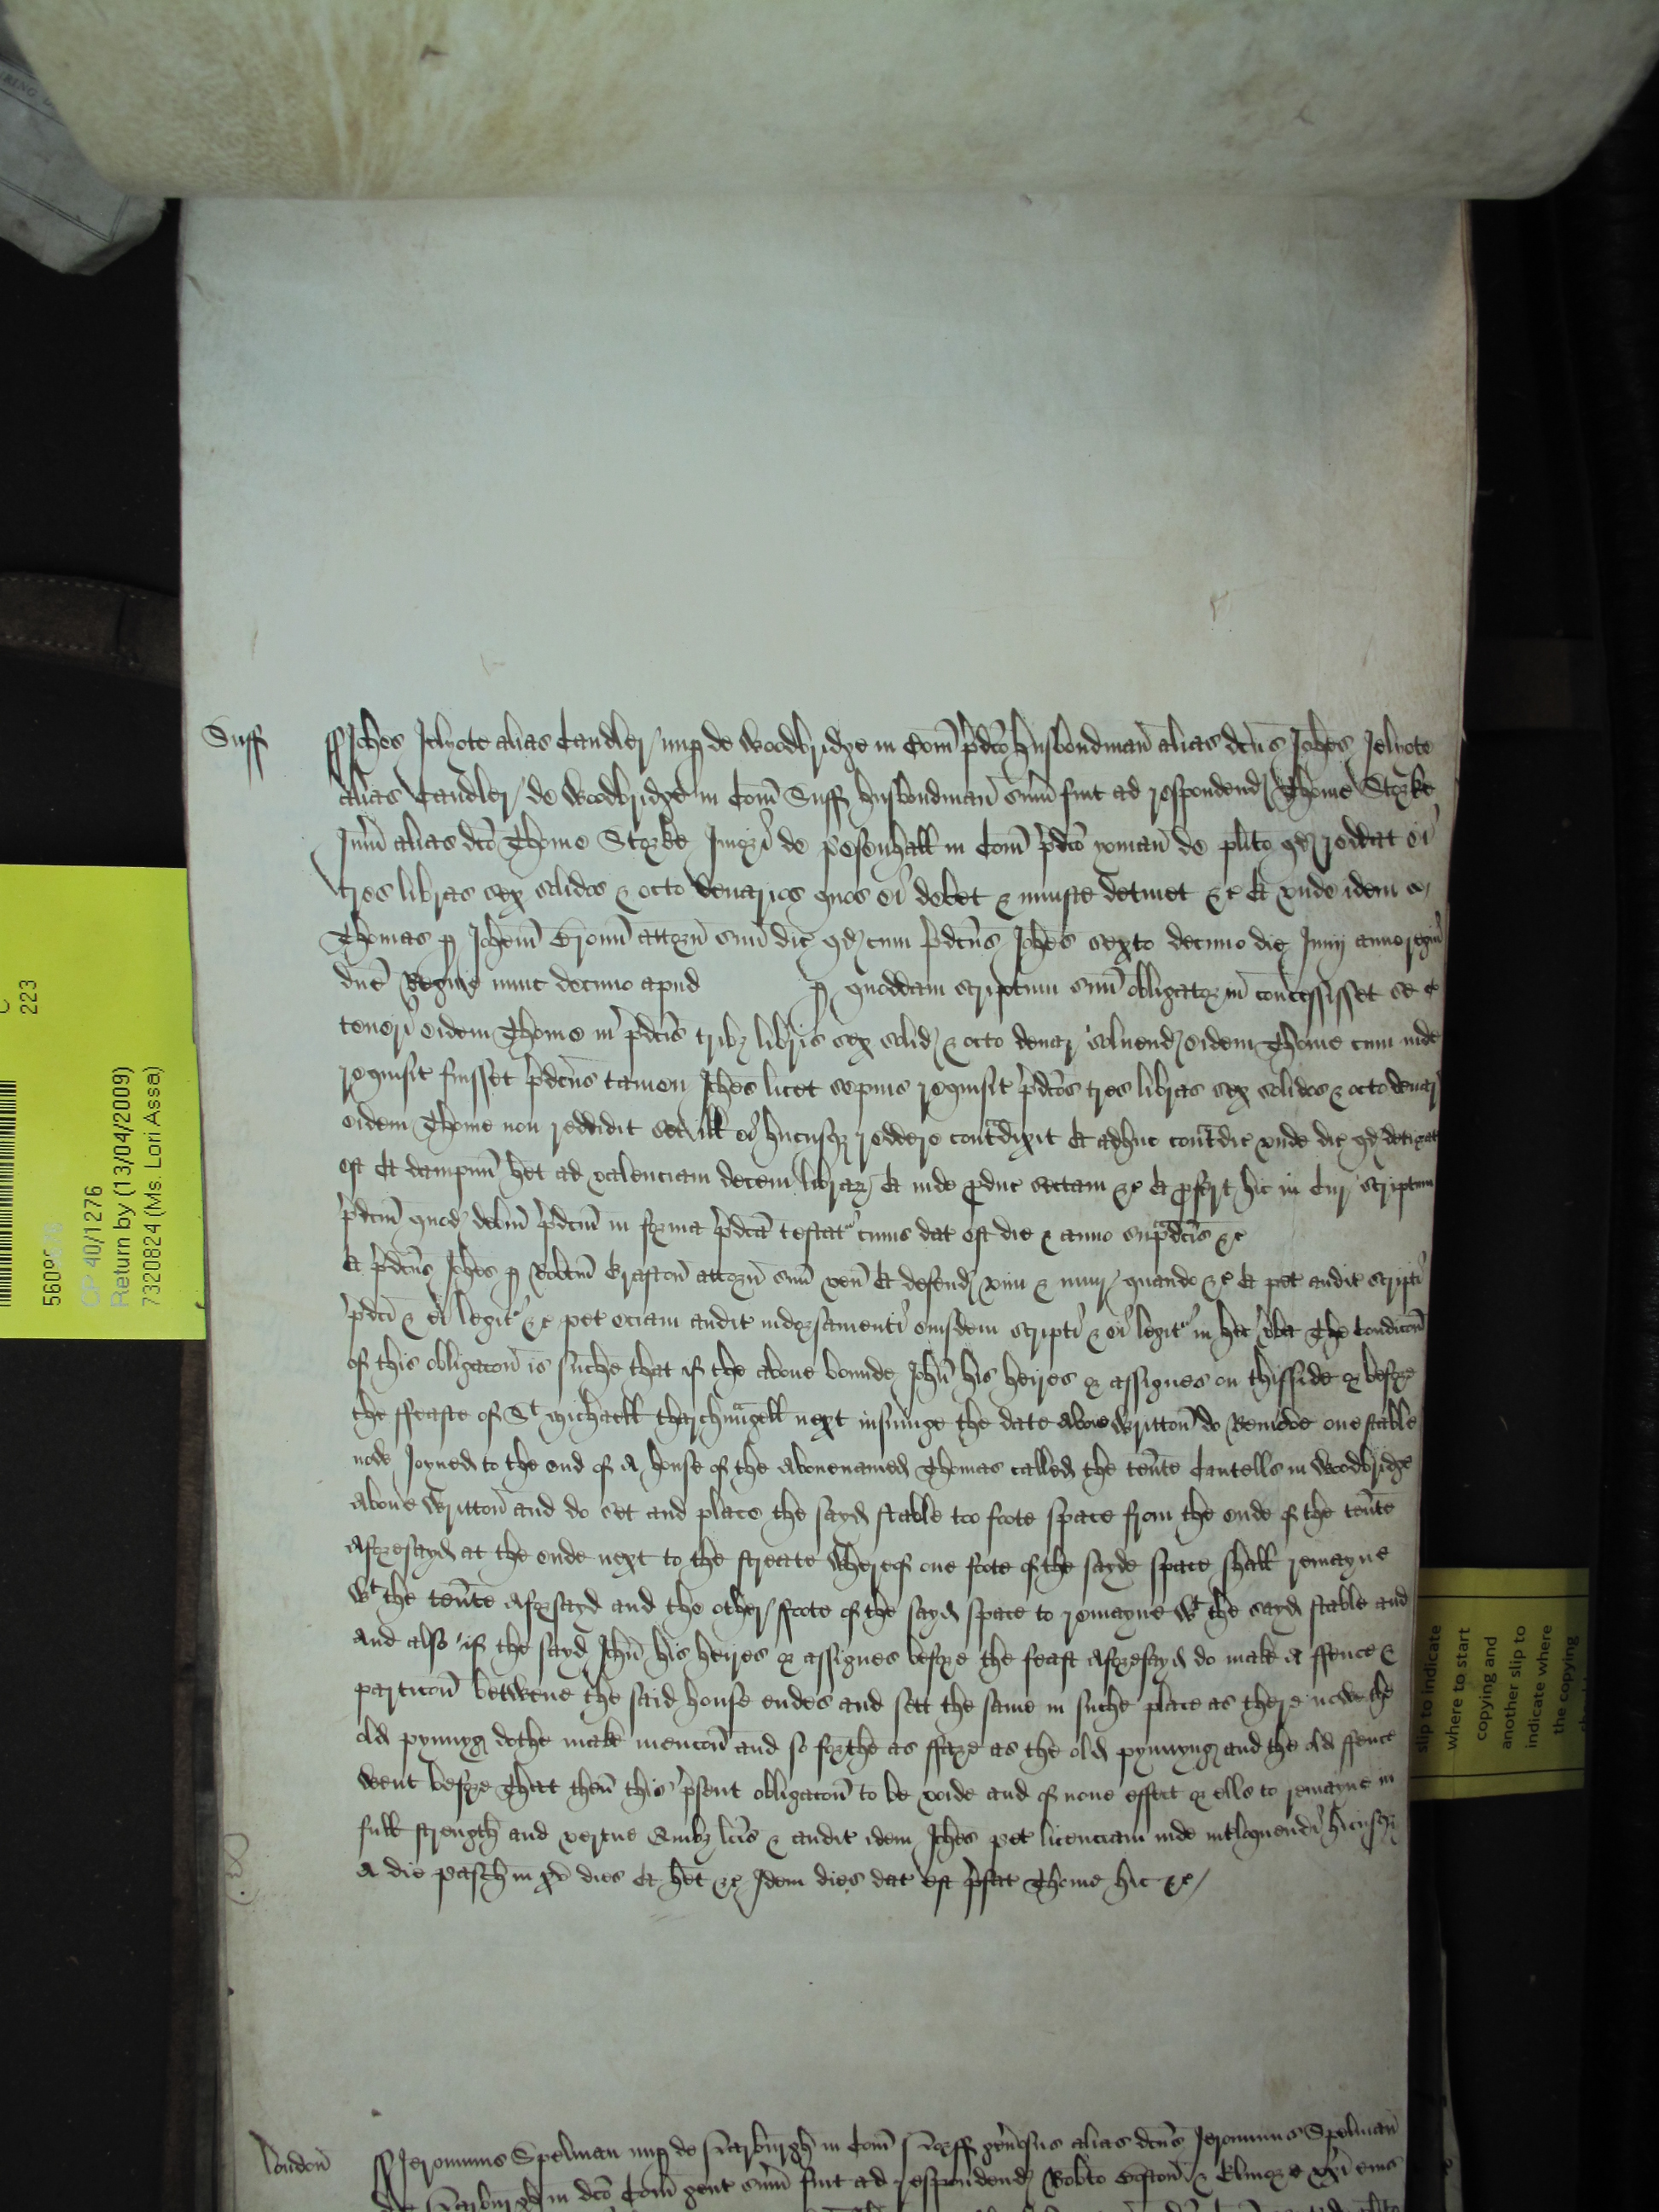 223
5609
CP 40/1276
Return by (13/04/2009)
73208824 (Ms. Lori Assa)
Suff
Johes Jelyote alias Candler nup de Woodbridge in Com pdco husbondman alias dcus Johes Jelyote
alias Candler de Woodbridge in Com Suff husbondman sum fuit ad respondend Thome Storke
Juni alias dco Thome Storke Juniori de pesenhall in Com pdco yoman de plito qd reddat ei
tres libras sex solidos & octo denarios quos ei debet & iniuste detinet &c Et unde idem
Thomas p Johem attorn suu dic qd cum pdcus Johes sexto decimo die Junij anno regni
dne Regine nunc decimo apud p quoddam scriptum suu obligatorm concessisset se
teneri eidem Thome in pdcis tribz libris sex solid & octo denar solvend eidem Thome cum inde
requisit fuisset pdcus tamen Johes licet sepius requisit pdcos tres libras sex solidos & octo denar
eidem Thome non reddidit set ill ei hucusqz reddere contdixit Et adhuc contdic unde dic qd detiorat
est Et dampnu het ad valenciam decem librar Et inde pduc sectam &c Et pfert hic in Cur scriptum
pdcm quod debm pdcm in forma pdca testat cuius dat est die & anno supadcis &c
Et pdcus Johes p Robtm Grafton attorn suu ven Et defend vim & iniur quando &c Et pet audit scripti
pdci & ei legit &c pet eciam audit indorsamenti eiusdem scripti & ei legit in hec vba The Condicon
of this obligacon is suche that if the above bounde John his heires or assignes on thisside & before
the ffeaste of St michaell tharchangell next insuinge the date above written do Remove one stable
nowe Joyned to the end of A house of the Abovenamed Thomas called the tente Cantells in Woodbridge
Above written and do set and place the sayd stable too foote space from the ende of the tente
Aforesayd at the ende next to the streate Whereof one foote of the sayde space shall remayne
wt the tente Aforsayd and the other ffoote of the sayd space to remayne wt the sayd stable and
and also if the sayd John his heires or assignes before the feast Aforesayd do make A ffence &
particon betwene the said house endes and sett the same in suche place as there nowe the
old pynnyg dothe make mencon and so forthe as ffare as the old pynnyng and the old ffence
went before That then this psent obligacon to be voide and of none effect or ells to remayne in
full strength and vertue Quibz lcis & audit idem Johes pet licenciam inde intloquendi hic
A die pasche in xv dies Et het &c Idem dies dat est pfat Thome hic &c
London
Jeronimus Spelman nup de Narburgh in Com Norff genosus alias dcus Jeronimus Spelman
de Narburgh in dco Com gent sum fuit ad respondend Robto & uxi eius
slip to indicate
where to start
copying and
another slip to
indicate where
the copying